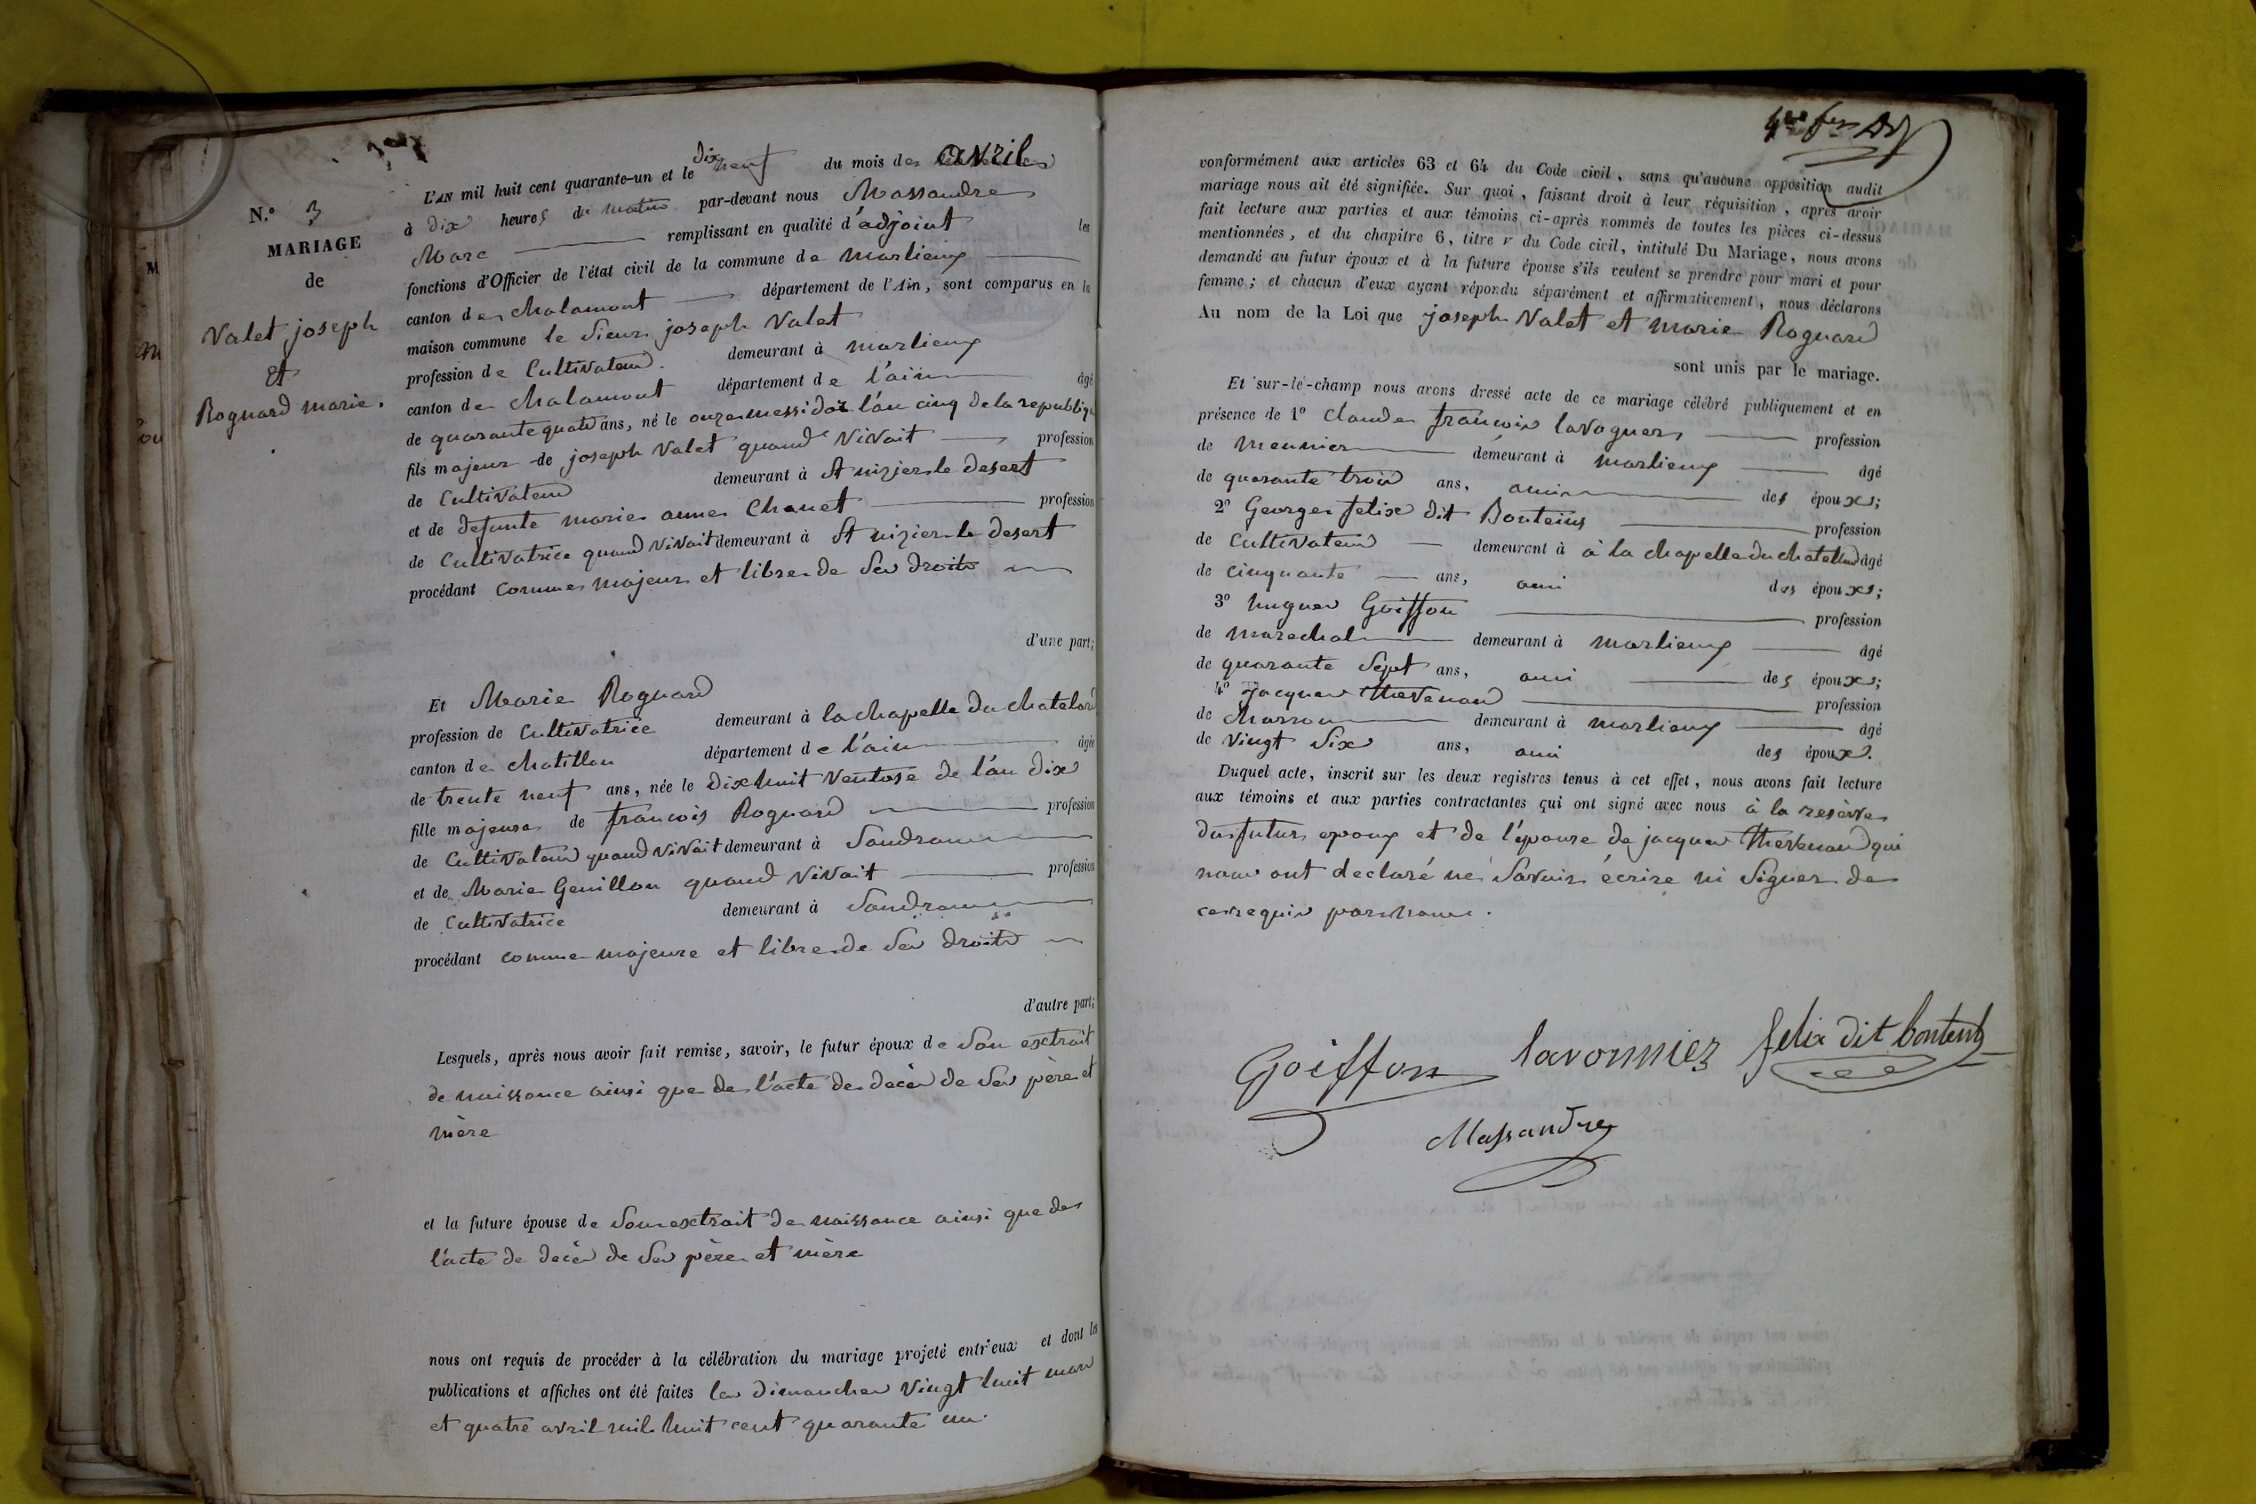 N.° 3
MARIAGE
de
Valet joseph
Et
Roguard marie.
L'AN mil huit cent quarante-un et le dix neuf du mois de avril
à dix heures du matin par-devant nous Massandre
Marc remplissant en qualité d'adjoint les
fonctions d'Officier de l'état civil de la commune de marlieux
canton de chalamont département de l'Ain, sont comparus en la
maison commune le Sieur joseph Valet
profession de Cultivateur. demeurant à marlieux
canton de chalamont département de l'ain âgé
de quarante quatre ans, né le onze messidor l'an cinq de la republique
fils majeur de joseph Valet quand Vivait profession
de Cultivateur demeurant à St nizier le desert
et de defunte marie anne Chanet profession
de Cultivatrice quand Vivait demeurant à St nizier le desert
procédant comme majeur et libre de Ses droits
d'une part;
Et Marie Roguard
profession de Cultivatrice demeurant à la chapelle du chatelard
canton de chatillon département de l'ain âgée
de trente neuf ans, née le Dixhuit Ventose de l'an dix
fille majeure de francois Roguard profession
de Cultivateur quand Vivait demeurant à Sandrans
et de Marie Genillon quand Vivait profession
de Cultivatrice demeurant à Sandrans
procédant comme majeure et libre de Ses droits
d'autre part;
Lesquels, après nous avoir fait remise, savoir, le futur époux de Son extrait
de naissance ainsi que de l'acte de decès de Ses père et
mère
et la future épouse de Son extrait de naissance ainsi que de
l'acte de decès de Ses père et mère
nous ont requis de procéder à la célébration du mariage projeté entr'eux et dont les
publications et affiches ont été faites les dimanches Vingt huit mars
et quatre avril mil huit cent quarante un.
conformément aux articles 63 et 64 du Code civil, sans qu'aucune opposition audit
mariage nous ait été signifiée. Sur quoi, faisant droit à leur réquisition, après avoir
fait lecture aux parties et aux témoins ci-après nommés de toutes les pièces ci-dessus
mentionnées, et du chapitre 6, titre v du Code civil, intitulé Du Mariage, nous avons
demandé au futur époux et à la future épouse s'ils veulent se prendre pour mari et pour
femme; et chacun d'eux ayant répondu séparément et affirmativement, nous déclarons
Au nom de la Loi que joseph Valet et marie Roguard
sont unis par le mariage.
Et sur-le-champ nous avons dressé acte de ce mariage célébré publiquement et en
présence de 1° Claude francois lavogner profession
de meunier demeurant à marlieux âgé
de quarante trois ans, ami des époux;
2° George felix dit Bontems profession
de Cultivateur demeurant à à la chapelle du chatellard âgé
de cinquante ans, ami des époux;
3° hugues Goiffon profession
de marechal demeurant à marlieux âgé
de quarante Sept ans, ami des époux;
4° Jacques thevenard profession
de charron demeurant à marlieux âgé
de Vingt Six ans, ami des époux.
Duquel acte, inscrit sur les deux registres tenus à cet effet, nous avons fait lecture
aux témoins et aux parties contractantes qui ont signé avec nous à la reserve
du futur epoux et de l'épouse de jacques thevenard qui
nous ont declaré ne Savoir écrire ni Signer de
ce requis par nous.
Goiffon lavonnier felix dit bontems
Massandre